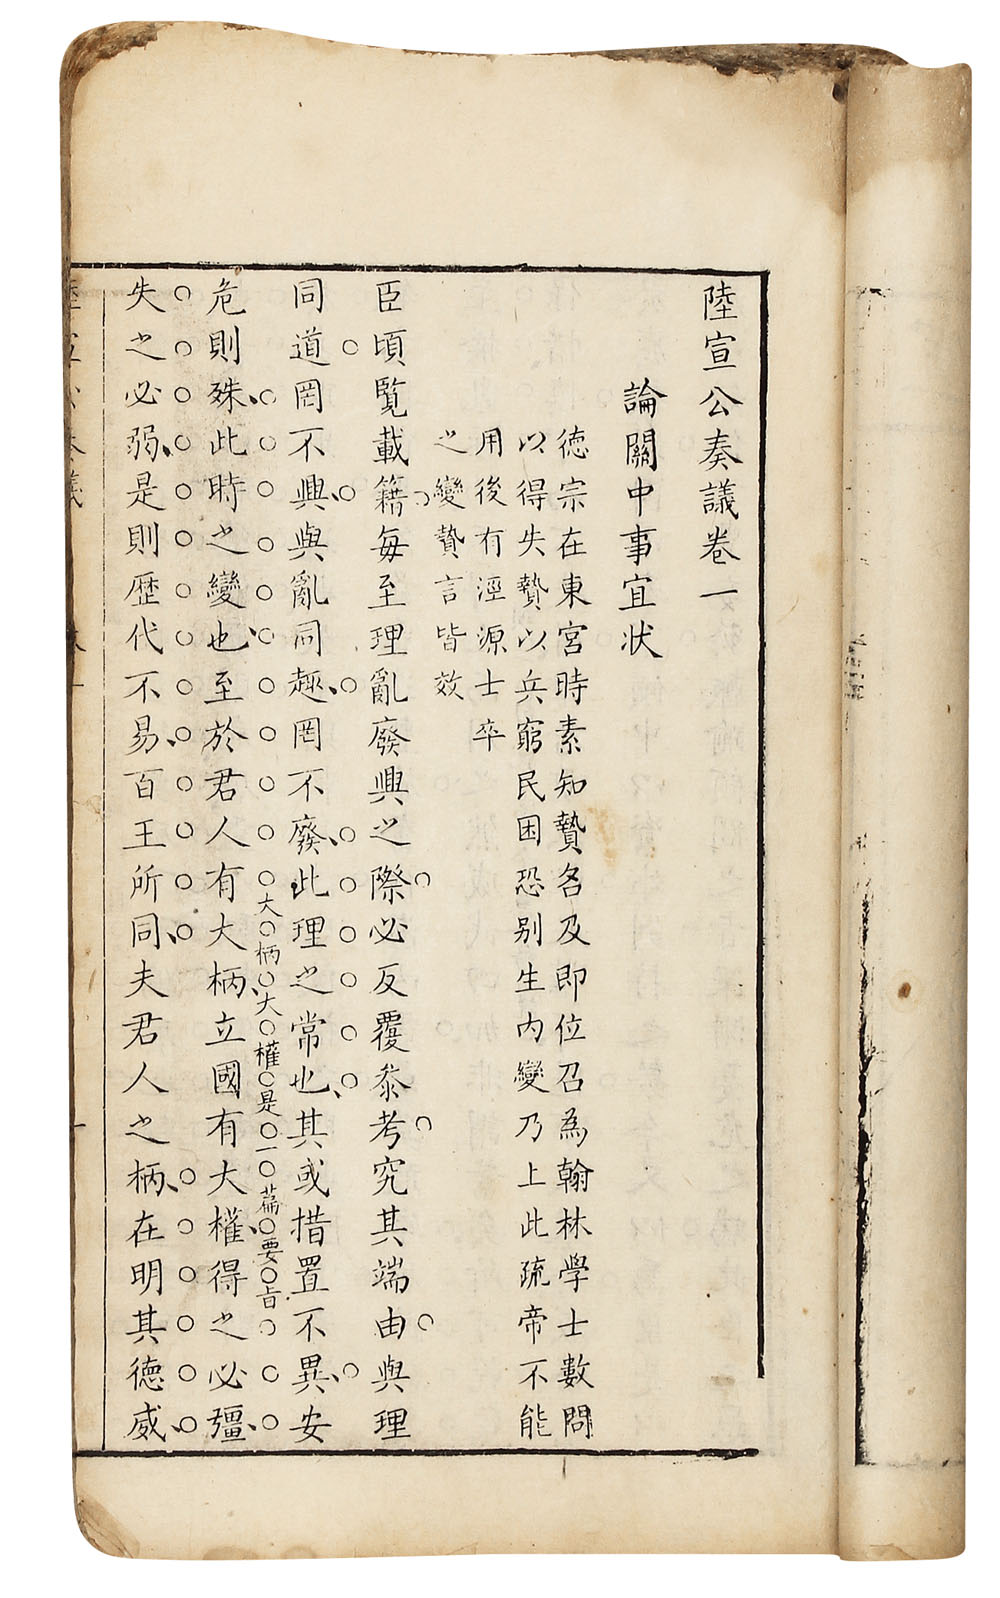 陸宣公奏議卷一
論關中事宜狀
德宗在東宮時素知贄名及即位召為翰林學士數問
以得失贄以兵窮民困恐别生内變乃上此疏帝不能
用後有涇源士卒
之變贄言皆效
臣頃覧載籍每至理亂廢興之際必反覆叅考究其端由與理
同道罔不興與亂同趣罔不廢此理之常也其或措置不異安
大柄大權是一篇要旨
危則殊此時之變也至於君人有大柄立國有大權得之必彊
失之必弱是則歴代不易百王所同夫君人之柄在明其德威